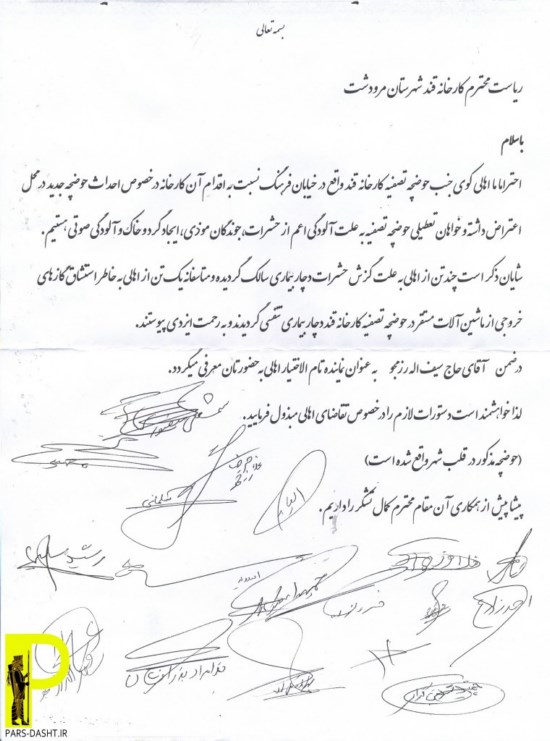 بسمه تعالی
ریاست محترم کارخانه قند شهرستان مرودشت
باسلام
احتراما ما اهالی کوی جنب حوضچه تصفیه کارخانه قند واقع در خیابان فرهنگ نسبت به اقدام آن کارخانه در خصوص احداث حوضچه جدید در محل
اعتراض داشته و خواهان تعطیلی حوضچه تصفیه به علت آلودگی اعم از حشرات، جوندگان موذی، ایجاد گرد و خاک و آلودگی صوتی هستیم.
شایان ذکر است چند تن از اهالی به علت گزش حشرات دچار بیماری سالک گردیده و متاسفانه یک تن از اهالی به خاطر استنشاق گازهای
خروجی از ماشین آلات مستقر در حوضچه تصفیه کارخانه قند دچار بیماری تنفسی گردیدند و به رحمت ایزدی پیوستند.
درضمن آقای حاج سیف اله رزمجو به عنوان نماینده تام الاختیار اهالی به حضورتان معرفی میگردد.
لذا خواهشمند است دستورات لازم را در خصوص تقاضای اهالی مبذول فرمایید.
(حوضچه مذکور در قلب شهر واقع شده است)
پیشاپیش از همکاری آن مقام محترم کمال تشکر را داریم.
PARS-DASHT.IR